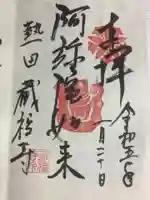 奉拝
令和五年
一月二十日
阿弥陀如来
熱田
蔵福寺